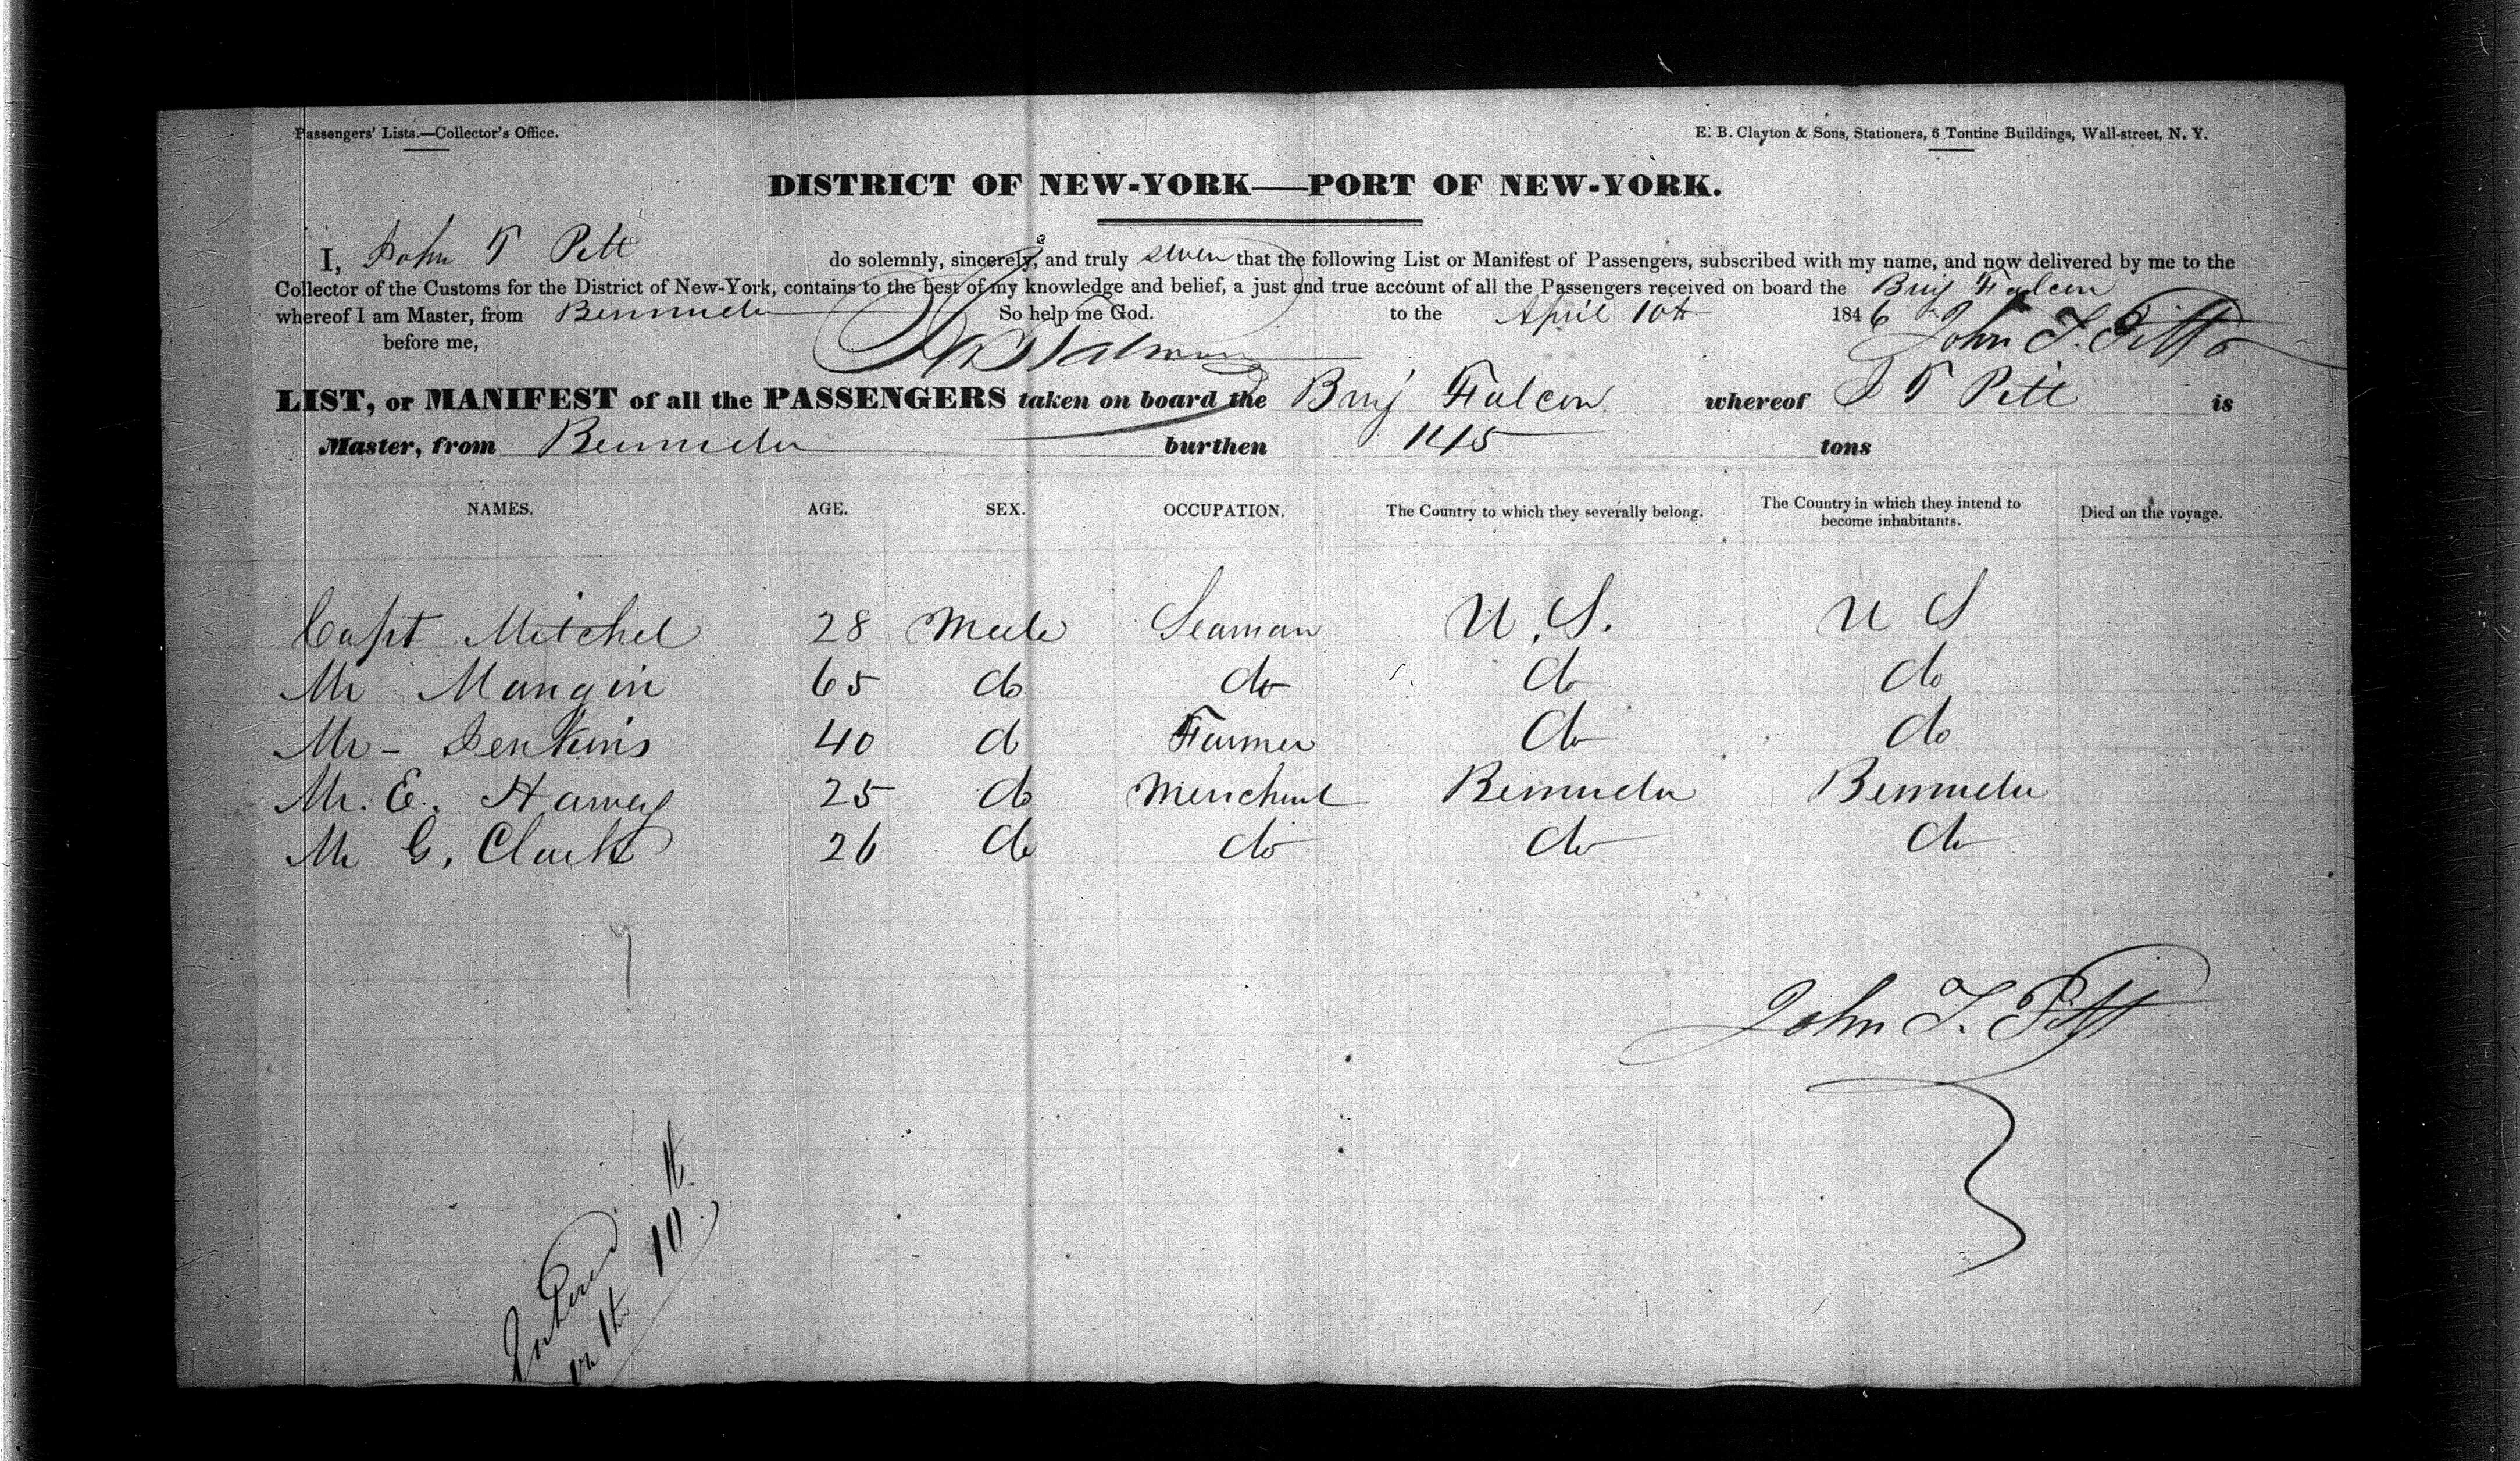 Passengers' Lists.—Collector's Office.
E. B. Clayton & Sons, Stationers, 6 Tontine Buildings, Wall-street, N. Y.
DISTRICT OF NEW-YORK——PORT OF NEW-YORK.
I, John T Pitt do solemnly, sincerely, and truly swear that the following List or Manifest of Passengers, subscribed with my name, and now delivered by me to the
Collector of the Customs for the District of New-York, contains to the best of my knowledge and belief, a just and true account of all the Passengers received on board the Brig Falcon
whereof I am Master, from Bermuda So help me God. to the April 10th 1846 John T. Pitt
before me,
LIST, or MANIFEST of all the PASSENGERS taken on board the Brig Falcon whereof J T Pitt is
Master, from Bermuda burthen 145 tons
NAMES. AGE. SEX. OCCUPATION. The Country to which they severally belong. The Country in which they intend to become inhabitants. Died on the voyage.
Capt Mitchel 28 Male Seaman U.S. U S
Mr Mangin 65 do do do do
Mr - Jenkins 40 do Farmer do do
Mr. E. Harvey 25 do Merchant Bermuda Bermuda
Mr G. Clark 26 do do do do
John T. Pitt
10th